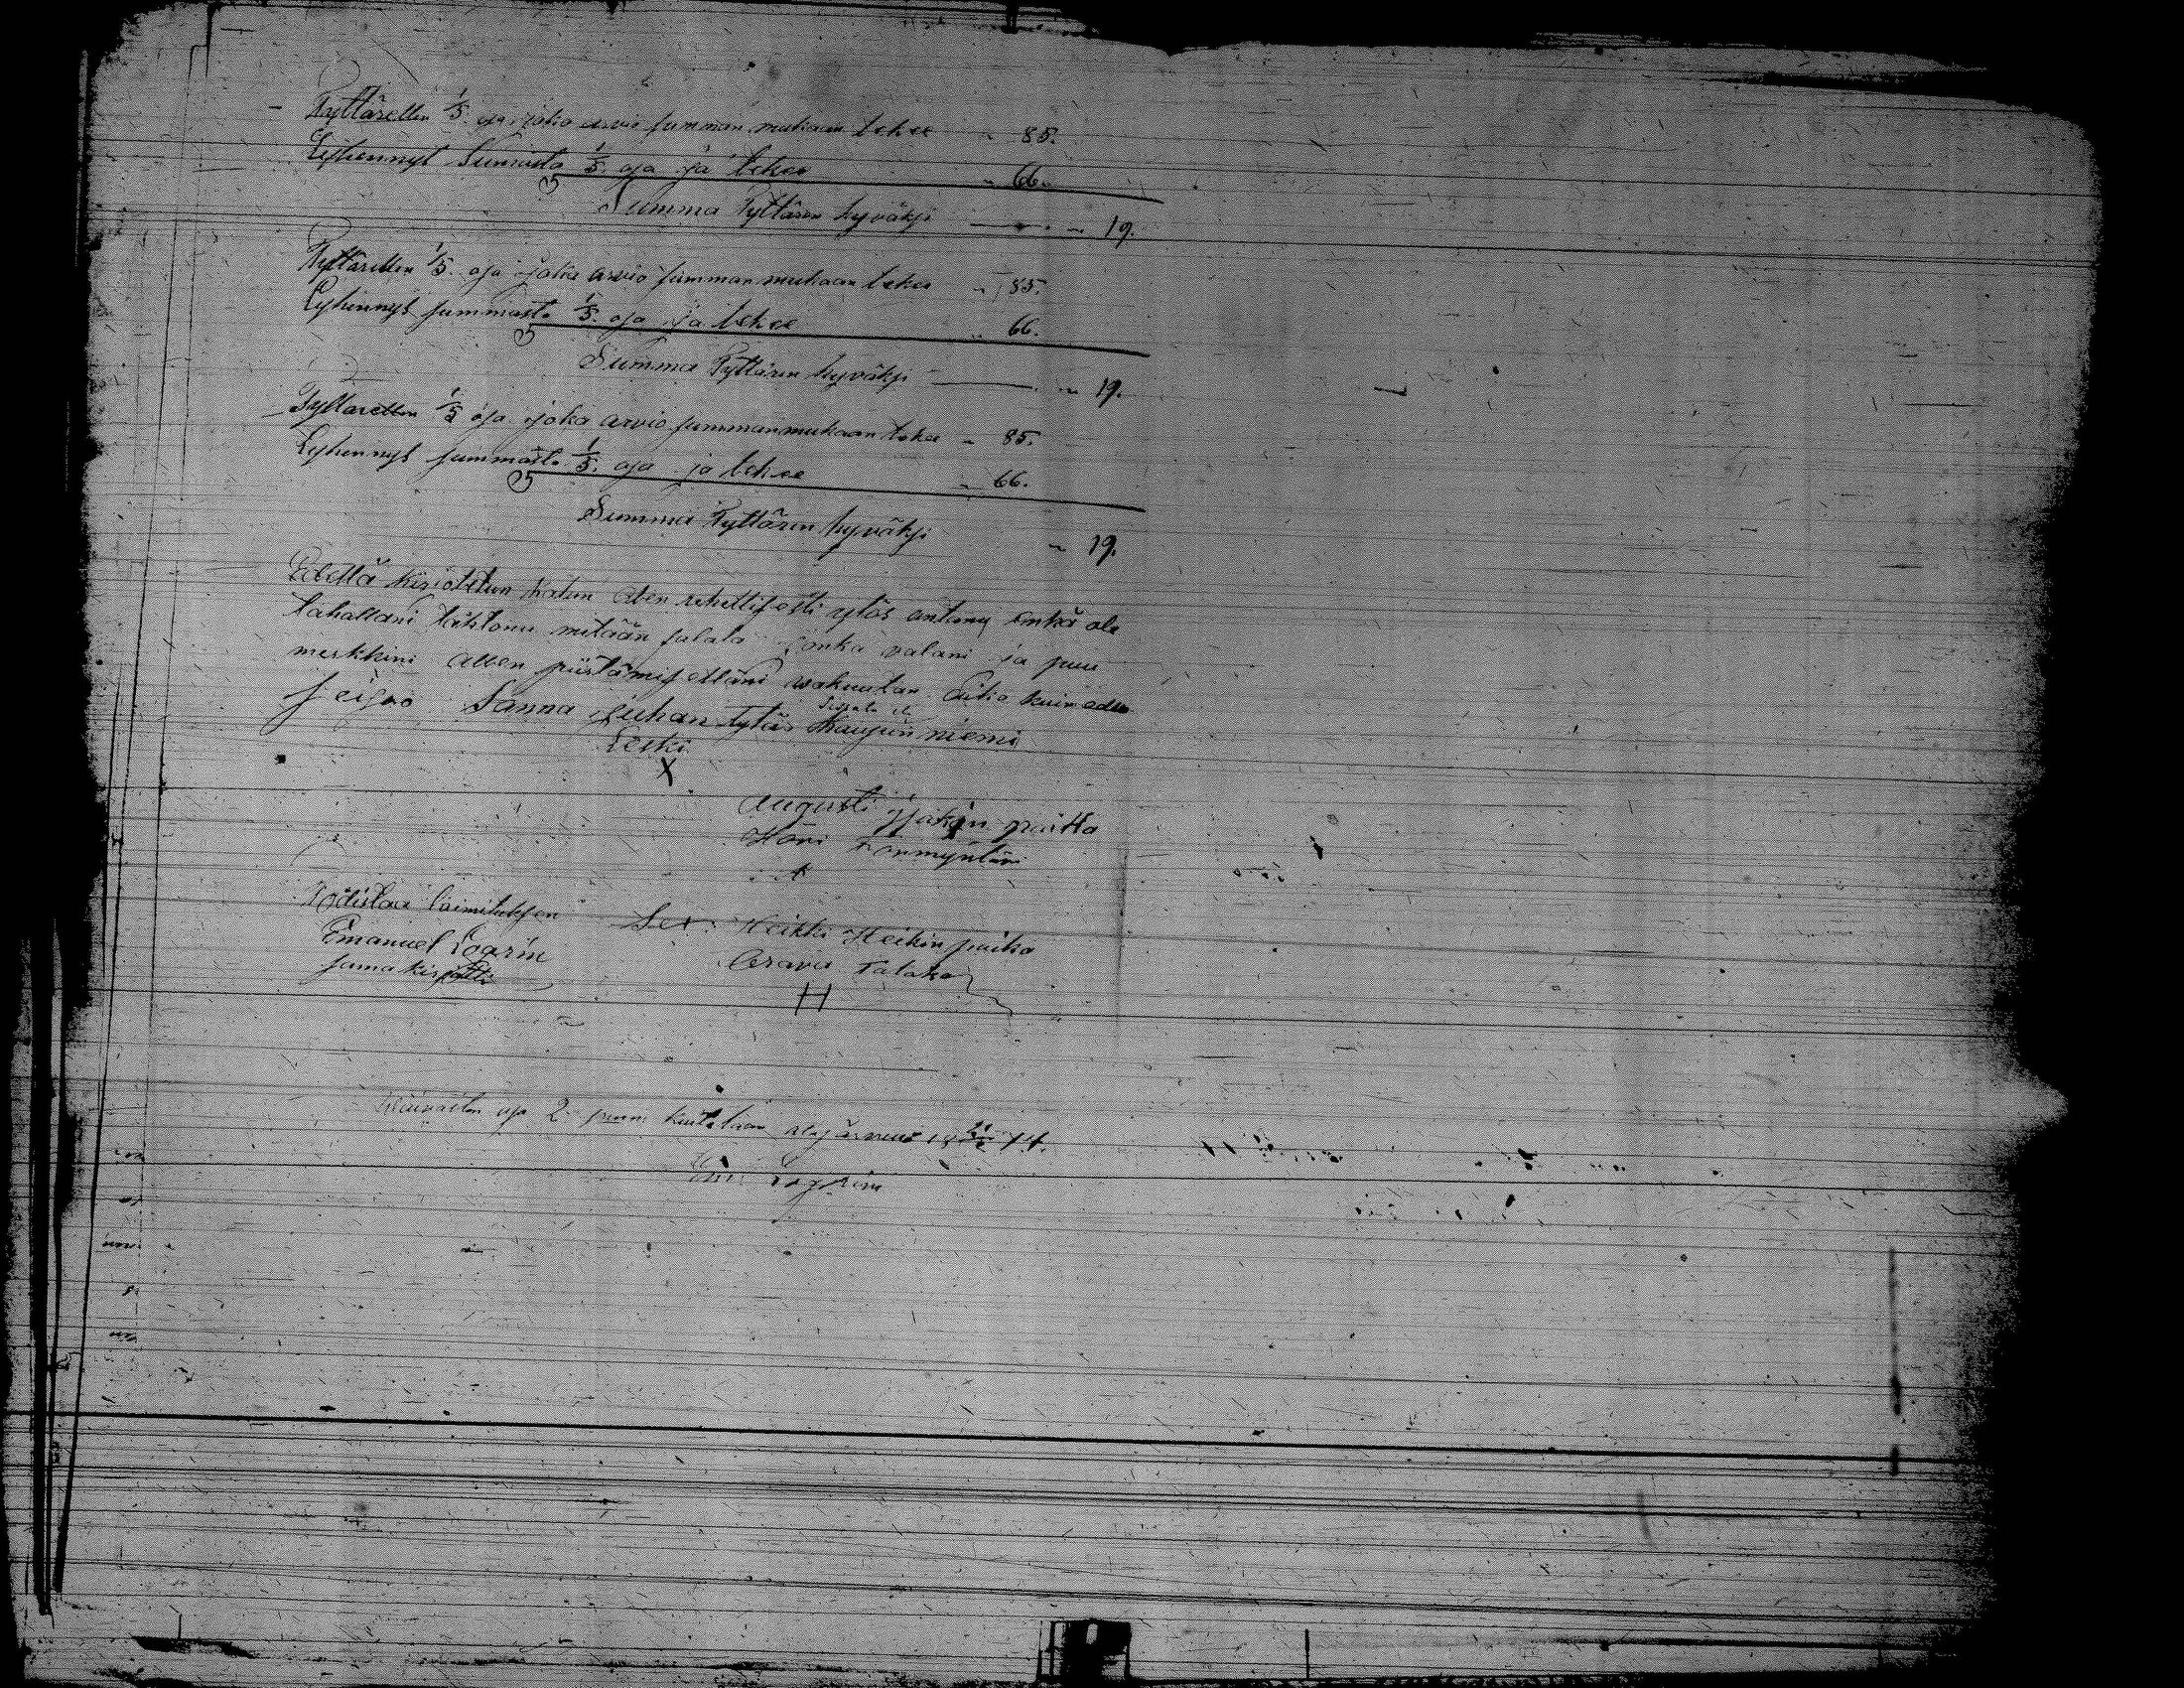 Tyttärellen 1/5 osa joka arvio summan mukaan tekee " 85.
Lyhennyst Summasta 1/5 osa ja tekee " 66.
Summa Tyttären hyväksi " 19.
Tyttärellen 1/5 osa joka arvio summan mukaan tekee " 85.
Lyhennyst summasta 1/5 osa ja tekee " 66.
Summa Tyttären hyväksi " 19.
Tyttärellen 1/5 osa joka arvio summan mukaan tekee " 85.
Lyhennyst summasta 1/5 osa ja tekee " 66.
Summa Tyttären hyväksi " 19.
Edellä kirjotetun kalun olen rehellisesti ylös antanu enkä ole
tahallani tahtonu mitään salata jonka valani ja puu
merkkini allen piistämiselläni vakuutan Aika kuin edellä
seisoo Sanna Juhan tytär Kaupin niemi
Leski
X
Augusti Jaakon poika
Honi
Todistaa toimituksen
Emanuel Lagrin
sama kirjotti
Heikki Heikin poika
Talaka
H
osa 2 kuitataan 74.
Em. Lagrin